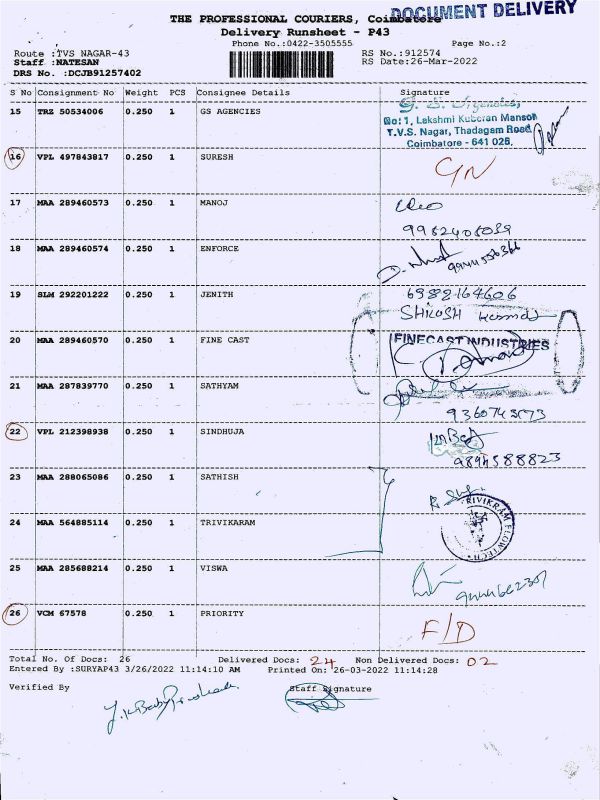 DOCUMENT DELIVERY
THE PROFESSIONAL COURIERS, Coimbatore
Delivery Runsheet - P43
Phone No.:0422-3505555 Page No.:2
Route :TVS NAGAR-43 RS No.:912574
Staff :NATESAN RS Date:26-Mar-2022
DRS No. :DCJB91257402
S No Consignment No Weight PCS Consignee Details Signature
15 TRZ 50534006 0.250 1 GS AGENCIES
G. S. Agencies,
No: 1, Lakshmi Kuberan Mansion
T.V.S. Nagar, Thadagam Road
Coimbatore - 641 025.
16 VPL 497843817 0.250 1 SURESH
17 MAA 289460573 0.250 1 MANOJ
18 MAA 289460574 0.250 1 ENFORCE
19 SLM 292201222 0.250 1 JENITH
6982164606
20 MAA 289460570 0.250 1 FINE CAST
FINECAST INDUSTRIES
21 MAA 287839770 0.250 1 SATHYAM
22 VPL 212398938 0.250 1 SINDHUJA
23 MAA 288065086 0.250 1 SATHISH
24 MAA 564885114 0.250 1 TRIVIKARAM
TRIVIKRAM FLOWTECH
25 MAA 285688214 0.250 1 VISWA
26 VCM 67578 0.250 1 PRIORITY
F/D
Total No. Of Docs: 26 Delivered Docs: 24 Non Delivered Docs: 02
Entered By :SURYAP43 3/26/2022 11:14:10 AM Printed On: 26-03-2022 11:14:28
Verified By Staff Signature